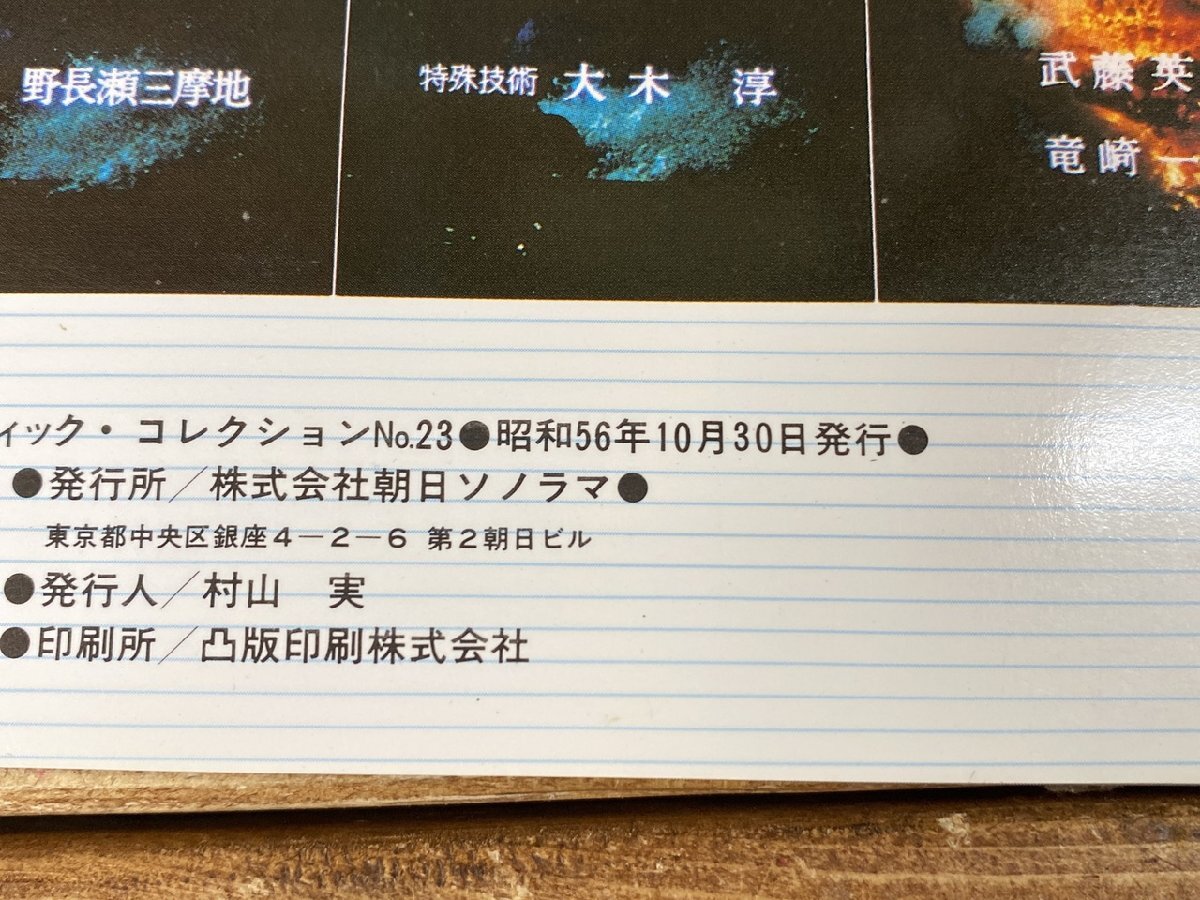 野長瀬三摩地
特殊技術 大木 淳
武藤英
竜崎一
ィック・コレクションNo.23●昭和56年10月30日発行●
●発行所／株式会社朝日ソノラマ●
東京都中央区銀座4―2―6 第2朝日ビル
●発行人／村山 実
●印刷所／凸版印刷株式会社